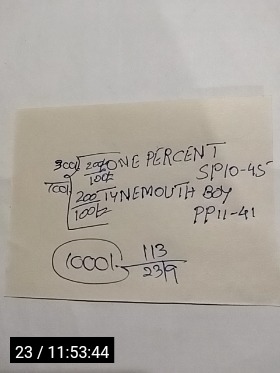 300/ 200/ ONE PERCENT
100/2 S/P10-45
700/
200/ TYNEMOUTH BOY
100/2 PP11-41
1000/. 113
23/9
23 / 11:53:44